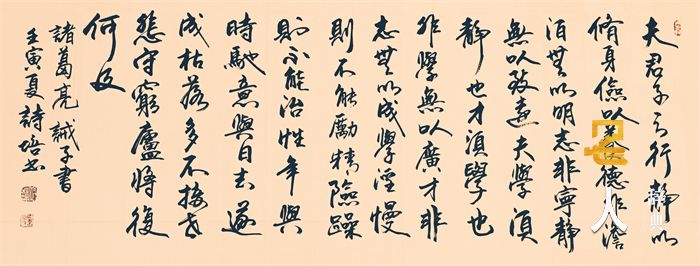 夫君子之行靜以
脩身儉以養德非澹
泊無以明志非寧靜
無以致遠夫學須
靜也才須學也
非學無以廣才非
志無以成學淫慢
則不能勵精險躁
則不能治性年與
時馳意與日去遂
成枯落多不接世
悲守窮廬將復
何及
諸葛亮誡子書
壬寅夏詩培書
人